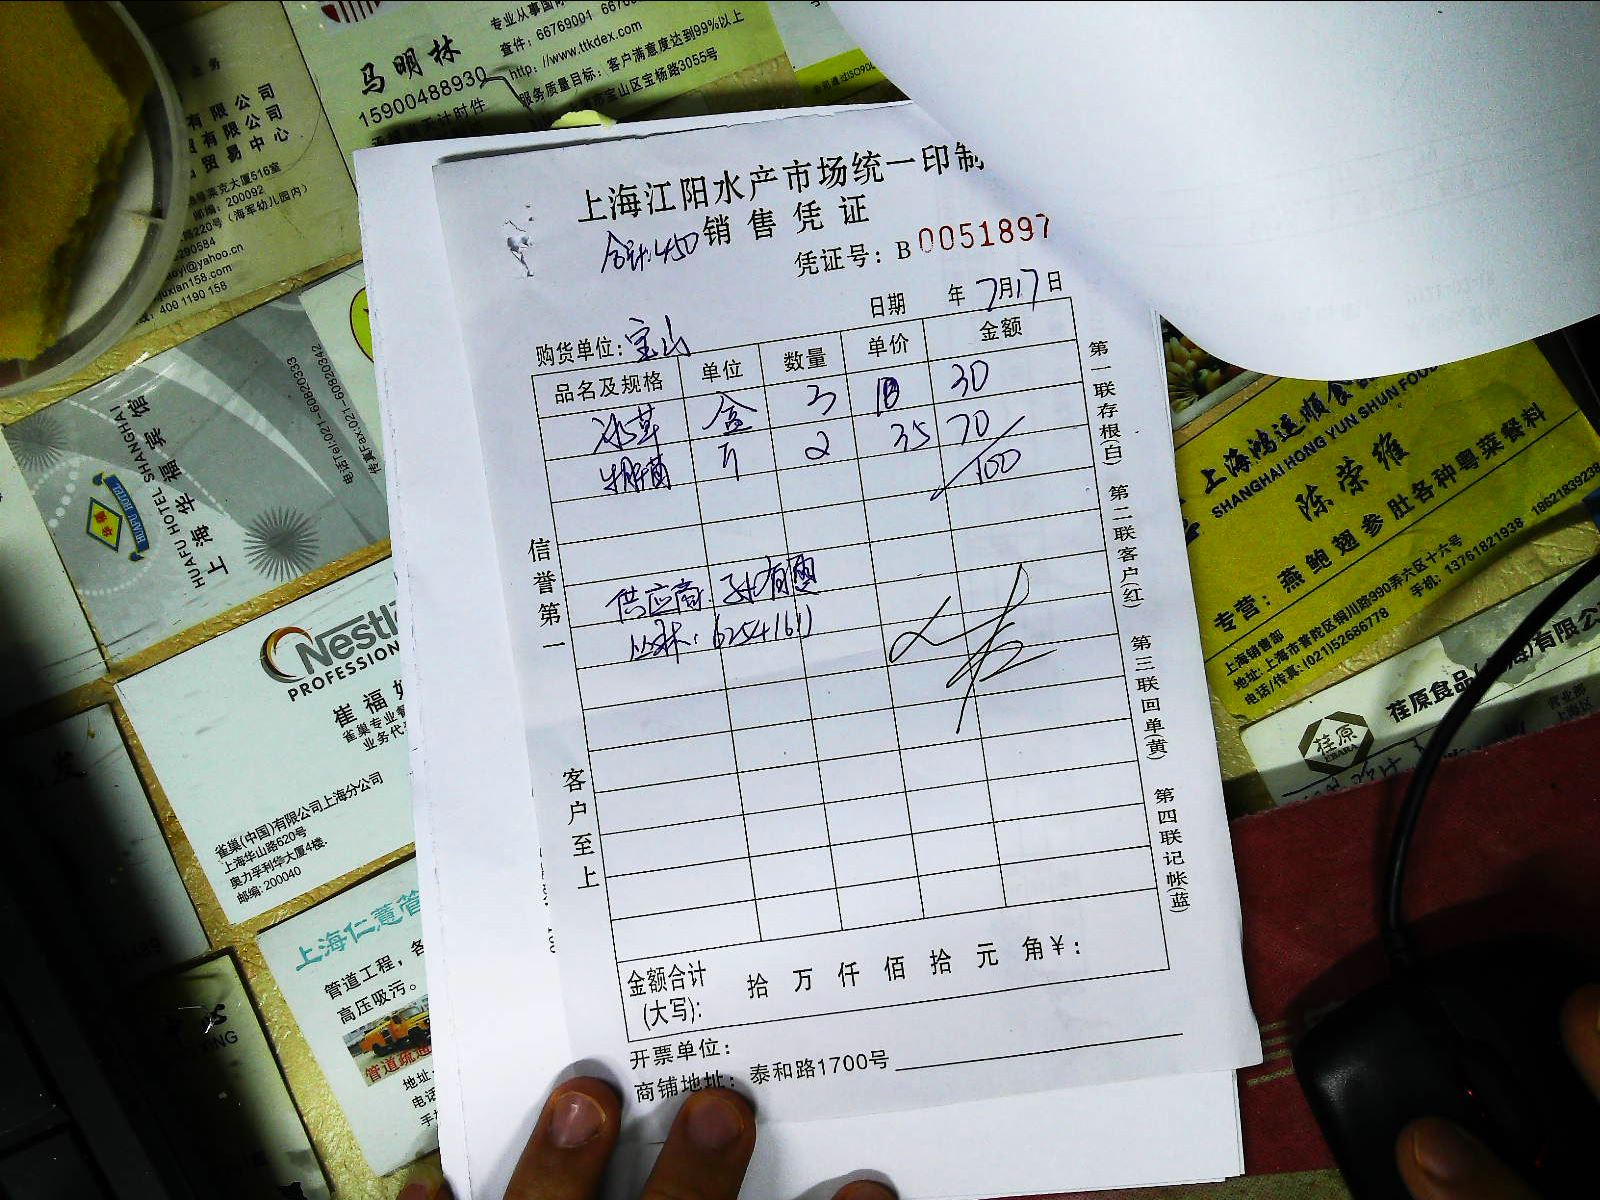 马明林
15900488930
专业从事国
查件: 66769004
http: //www.ttkdex.com
服务质量目标: 客户满意度达到99%以上
宝山区宝杨路3055号
有限公司
有限公司
贸易中心
莱克大厦516室
邮编: 200092
路220号 (海军幼儿园内)
290584
@yahoo.cn
juxian158.com
400 1190 158
上海江阳水产市场统一印制
销售凭证
合计:450
凭证号: B 0051897
日期 年 7月17日
购货单位: 宝山
品名及规格 单位 数量 单价 金额
冰草 盒 3 10 30
牛肝菌 斤 2 35 70
100
供应商
62541611
信誉第一
客户至上
第一联存根(白) 第二联客户(红) 第三联回单(黄) 第四联记帐(蓝)
金额合计
(大写): 拾 万 仟 佰 拾 元 角 ¥:
开票单位:
商铺地址: 泰和路1700号
上海华福宾馆
HUAFU HOTEL SHANGHAI
HUAFU HOTEL
电话Tel:021-60820333
传真Fax:021-60820342
Nestl
PROFESSION
崔福
雀巢专业餐
业务代
雀巢(中国)有限公司上海分公司
上海华山路620号
奥力孚利华大厦4楼.
邮编: 200040
上海仁薏管
管道工程, 各
高压吸污。
管道疏通
地址:
电话
手
上海鸿运顺食
SHANGHAI HONG YUN SHUN FOOD
陈荣维
专营: 燕鲍翅参肚各种粤菜餐料
上海销售部
地址: 上海市普陀区铜川路990弄六区十六号
电话/传真: (021)52686778 手机: 13761821938 1862183923
荏原
EBARA
荏原食品(上海)有限公
营业部
上海区